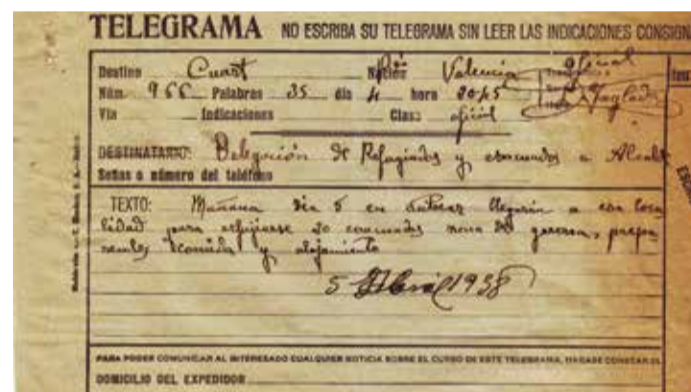 TELEGRAMA NO ESCRIBA SU TELEGRAMA SIN LEER LAS INDICACIONES CONSIGN
Destino Cuart Valencia oficial
Núm. 966 Palabras 35 día 4 hora 2045
Vía Indicaciones Clase oficial
DESTINATARIO: Delegación de Refugiados y evacuados a Alcalde
Señas o número del teléfono
TEXTO: Mañana día 5 en autocar llegarán a esa loca
lidad para refugiarse 20 evacuados zona de guerra, prepa
comida y alojamiento
5 Abril 1938
PARA PODER COMUNICAR AL INTERESADO CUALQUIER NOTICIA SOBRE EL CURSO DE ESTE TELEGRAMA, HAGASE CONSTAR EL
DOMICILIO DEL EXPEDIDOR